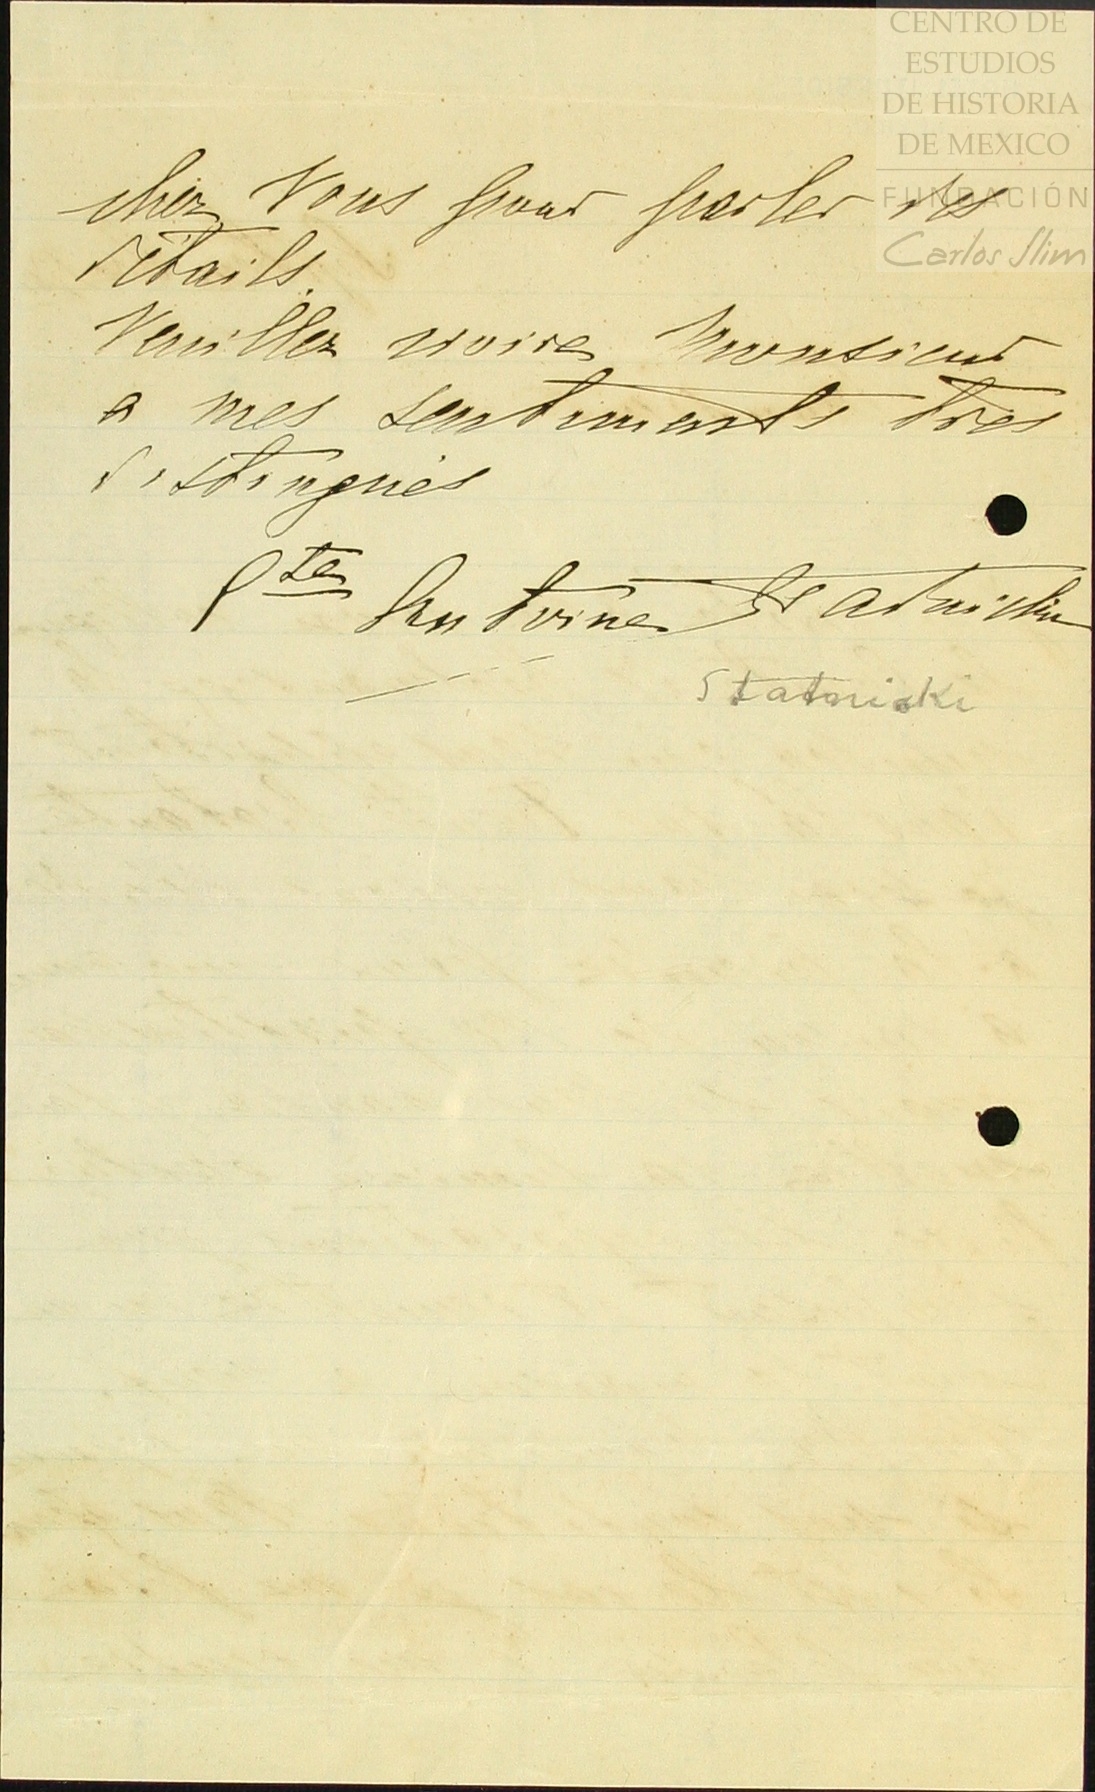 CENTRO DE
ESTUDIOS
DE HISTORIA
DE MEXICO
FUNDACIÓN
Carlos Slim
chez Vous pour parler des
détails.
Veuillez croire Monsieur
a mes sentiments tres
distingués
Cte Antoine
Statniski